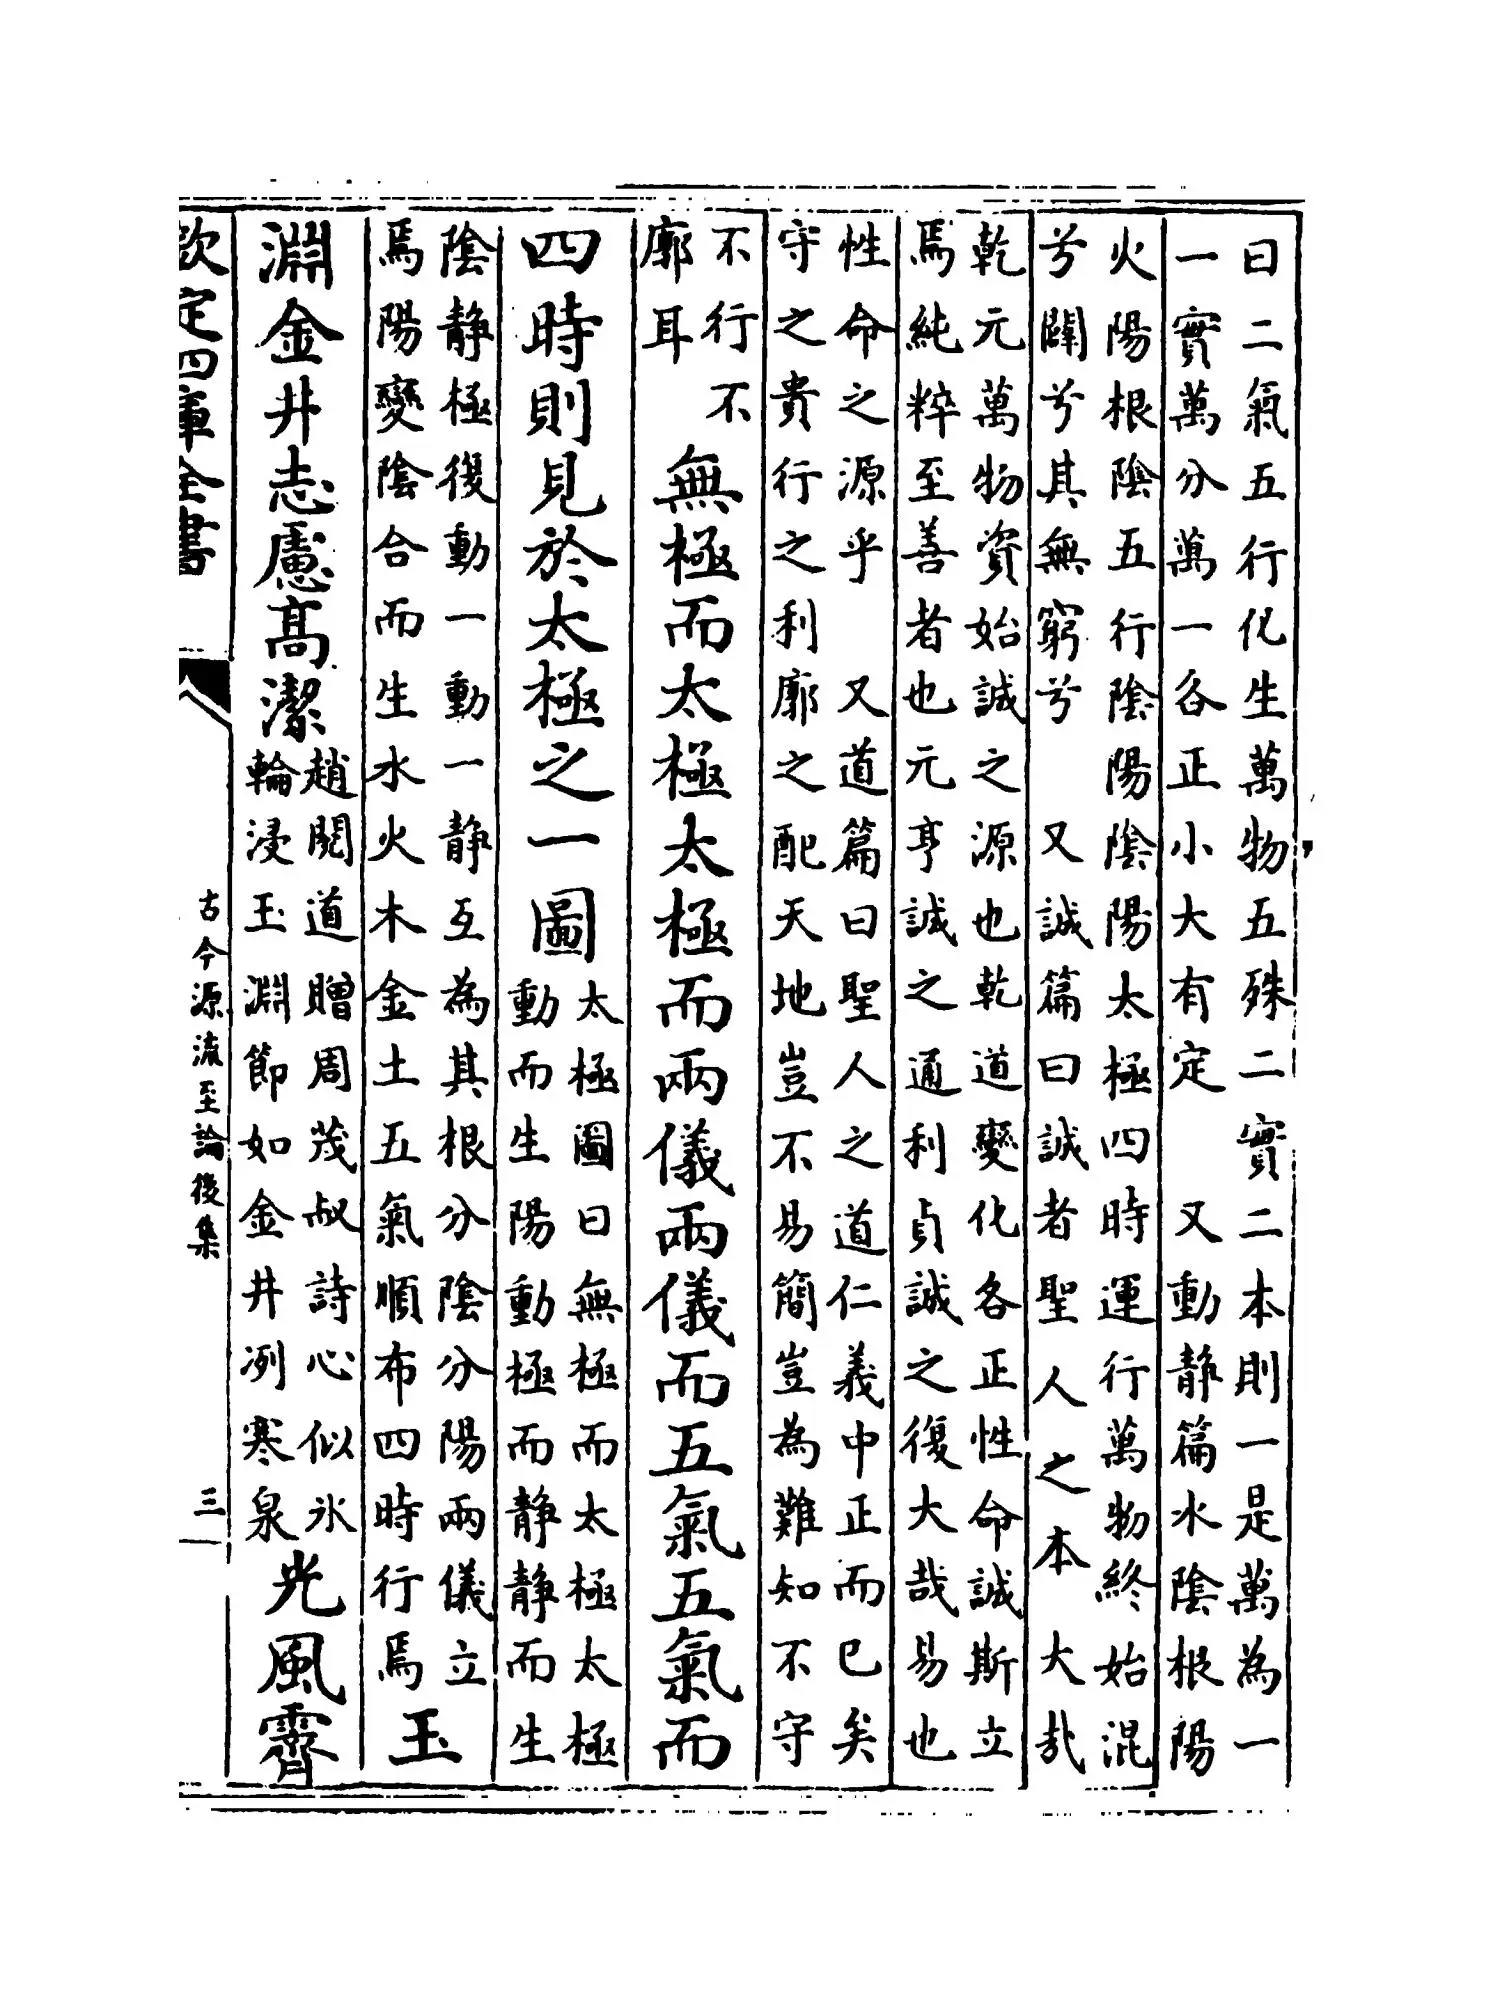 曰二氣五行化生萬物五殊二實二本則一是萬為一
一實萬分萬一各正小大有定　又動靜篇水陰根陽
火陽根陰五行陰陽陰陽太極四時運行萬物終始混
兮闢兮其無窮兮　又誠篇曰誠者聖人之本大哉
乾元萬物資始誠之源也乾道變化各正性命誠斯立
焉純粹至善者也元亨誠之通利貞誠之復大哉易也
性命之源乎　又道篇曰聖人之道仁義中正而已矣
守之貴行之利廓之配天地豈不易簡豈為難知不守
不行不
廓耳
無極而太極太極而兩儀兩儀而五氣五氣而
四時則見於太極之一圖
太極圖曰無極而太極太極
動而生陽動極而靜靜而生
陰静極復動一動一静互為其根分陰分陽兩儀立
焉陽變陰合而生水火木金土五氣順布四時行焉
玉
淵金井志慮高潔
趙閱道贈周茂叔詩心似氷
輪浸玉淵節如金井冽寒泉
光風霽
欽定四庫全書
古今源流至論後集
三